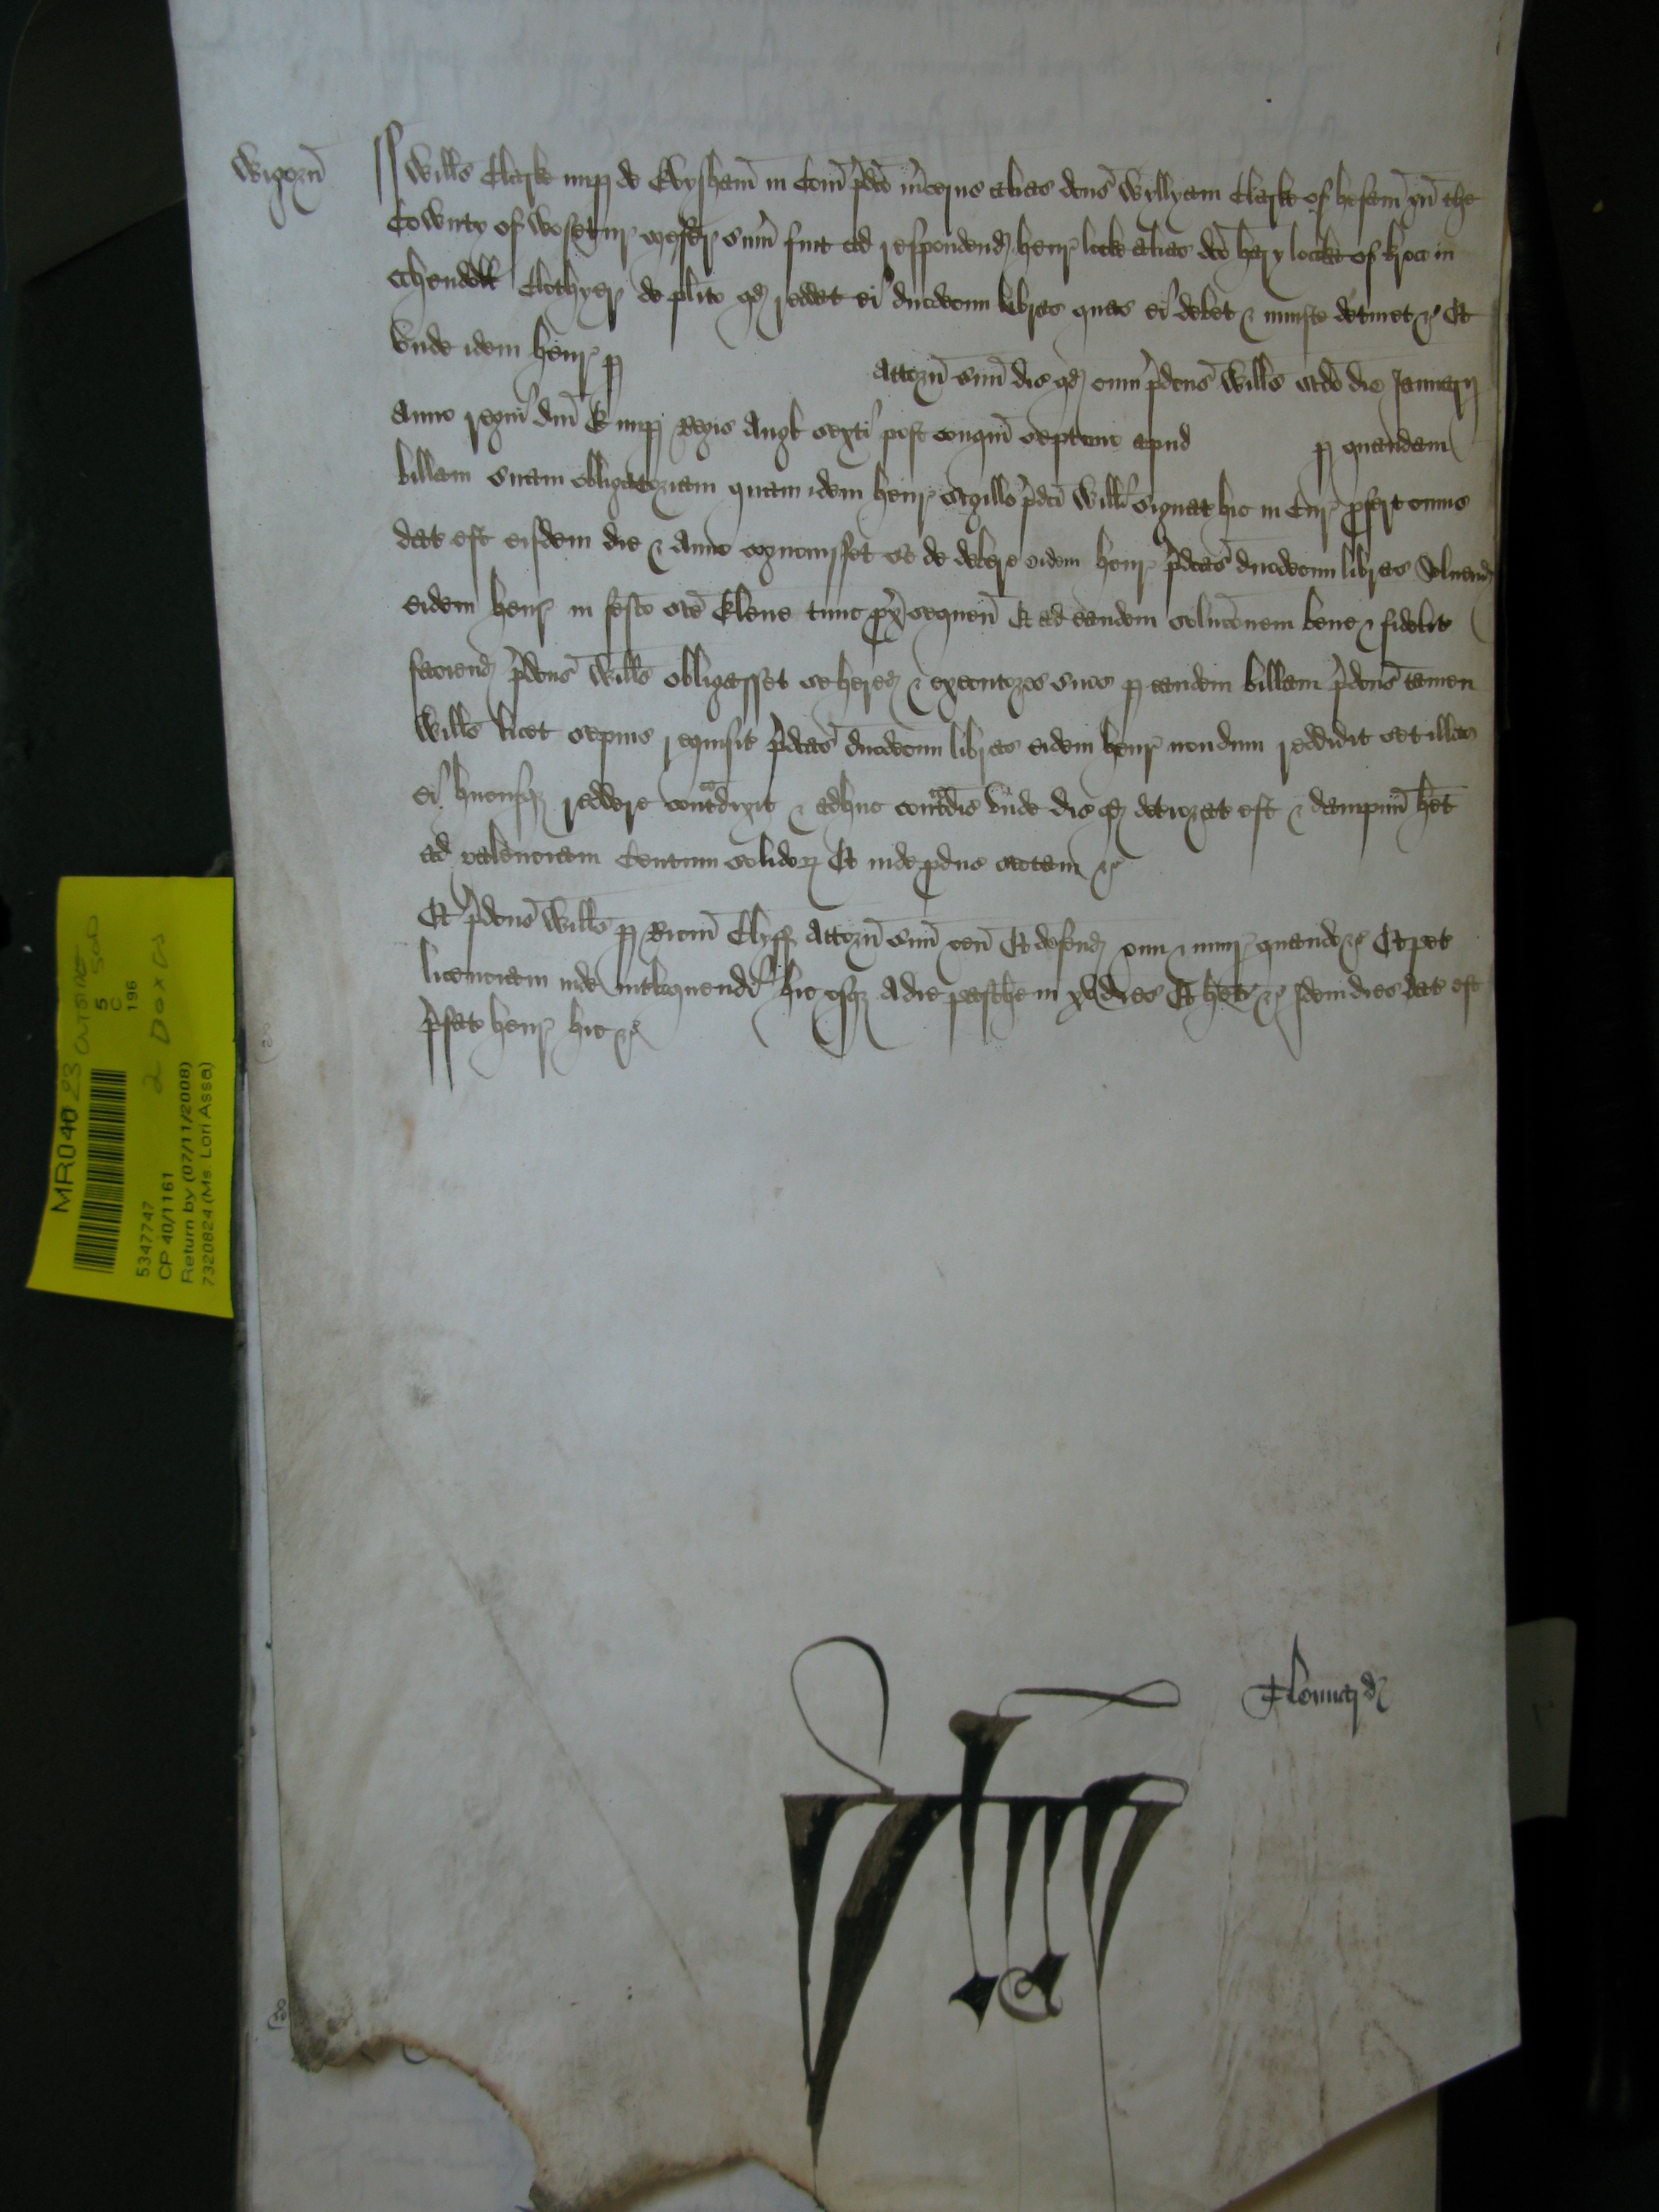 Wigorn̄
ss Willms Clerk nup de Evysham in Com̄ p̄dco m̄cerus alias dcus Wyllyam Clerk of hesam yn̄ the
Cownty of Wosetur mercer sum̄ fuit ad respondend henr locke alias dco hery locke of in
Clothyer de plito qd reddat ei duodecim libras quas ei debet & iniuste detinet &c Et
Unde idem henr p
Attorn̄ sum̄ dic qd cum p̄dcus Willms die Januarij
Anno regni dni E nup Regis Angl sexti post conqm̄ septimo apud p quandam
billam suam obligatoriam quam idem henr sigillo p̄dci Willi signat hic in Cur profert cuius
dat est eisdem die & Anno cognovisset se de debere eidem henr p̄dcas duodecim libras Solvend
eidem henr in festo sce Elene tunc prox sequen̄ Et ad eandem solucōnem bene & fidelit
faciend p̄dcus Willms obligasset se hered & executores suos p eandem billam p̄dcus tamen
Willms licet sepius requisit p̄dcas duodecim libras eidem henr nondum reddidit set illas
ei hucusq reddere contradixit & adhuc contradic Unde dic qd deteriorat est & dampnum het
ad valenciam Centum solidor Et inde producit sectam &c
Et p̄dcus Willms p Ricm̄ Clyff Attorn̄ sum̄ ven̄ Et defend vim & iniur quando &c Et pet
licenciam inde intloquendi hic usq A die pasche in xv dies Et het &c Idem dies dat est
p̄fat henr hic &c
MR040 23 OUTSIZE
5 SOD
C
196
2 BOXES
5347747
CP 40/1161
Return by (07/11/2008)
7320824 (Ms. Lori Assa)